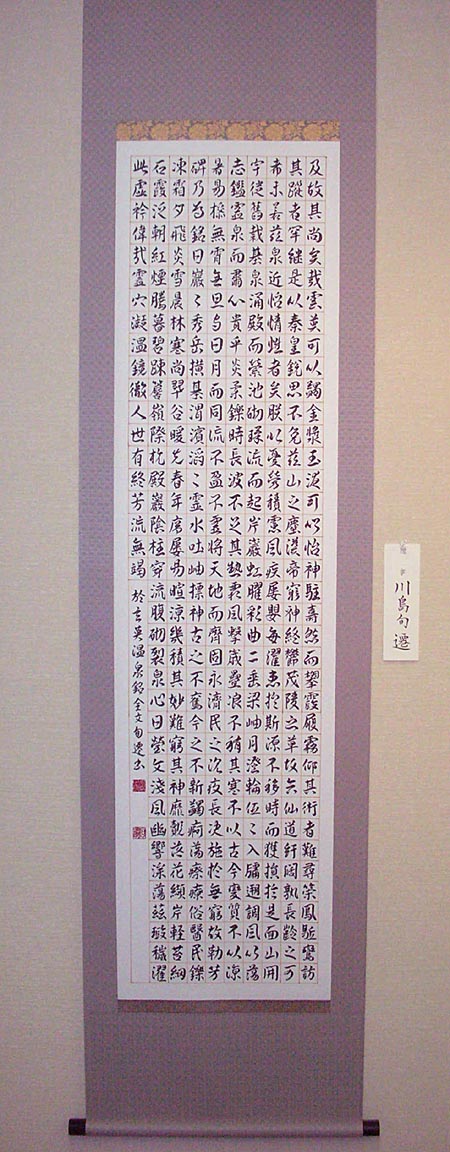 及故其尚矣哉雲英可以蠲金漿玉液可以怡神駐壽然而攀霞履霧仰其術者難尋策鳳驅鸞訪
其蹤者罕繼是以秦皇銳思不免茲山之塵漢帝窮神終鬱茂陵之草故矣仙道軒闊孰長齡之可
希未若茲泉近怡情性者矣朕以憂勞積慮風疾屢嬰每濯患於斯源不移時而獲損於是面山開
宇從舊裁基泉涌殿而縈池砌環流而起岸巖虹曜彩曲二垂梁岫月澄輪低〻入牖遊調風以蕩
志鑑靈泉而肅心賁平炎柔鑠時長波不足其熱嚴風擊歲疊浪不稍其寒不以古今變質不以涼
暑易操無霄無旦与日月而同流不盈不虛將天地而齊固永濟民之沈疾長決施於無窮故勒芳
碑乃為銘曰巖〻秀岳橫基渭濱滔〻靈水吐岫標神古之不舊今之不新蠲痾蕩瘵療俗醫民鑠
凍霜夕飛炎雪晨林寒尚翠谷暖先春年序屢易暄涼幾積其妙難窮其神靡覿落花纈岸輕苔網
石霞泛朝紅煙騰暮碧疎簷嶺際抗殿巖陰柱穿流腹砌裂泉心日瑩文淺風幽響深蕩茲瑕穢濯
此虛衿偉哉靈穴凝溫鏡徹人世有終芳流無竭 温泉銘全文句遷
川島句遷